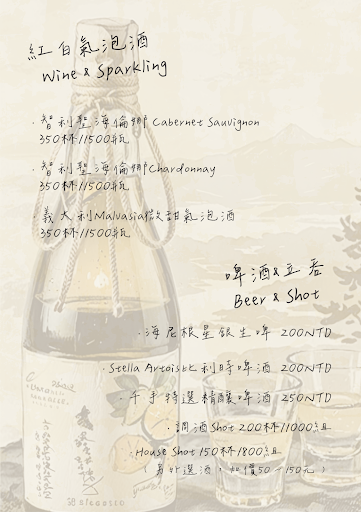 紅白氣泡酒
Wine & Sparkling
·智利聖海倫娜 Cabernet Sauvignon
350杯/1500瓶
·智利聖海倫娜Chardonnay
350杯/1500瓶
·義大利Malvasia微甜氣泡酒
350杯/1500瓶
啤酒&立吞
Beer & Shot
·海尼根星銀生啤 200NTD
·Stella Artois比利時啤酒 200NTD
·千手特選精釀啤酒 250NTD
·調酒Shot 200杯/1000組
·House Shot 150杯/800組
(另外選酒,加價50~150元)